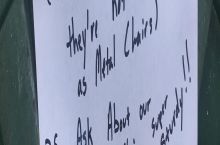 they're not
as Metal Chairs)
PS Ask About our
super
sturdy!!